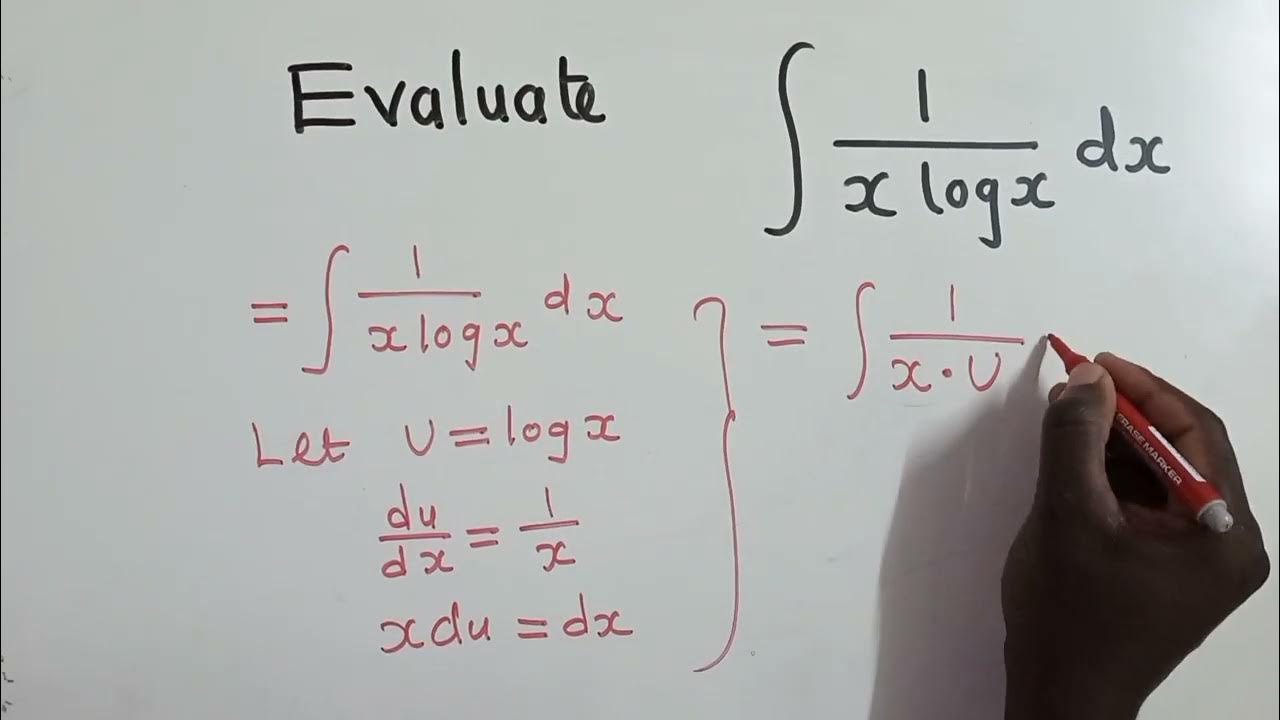 Evaluate ∫ 1/(x log x) dx
= ∫ 1/(x log x) dx
Let U = log x
du/dx = 1/x
x du = dx
= ∫ 1/(x · U)
ERASE MARKER